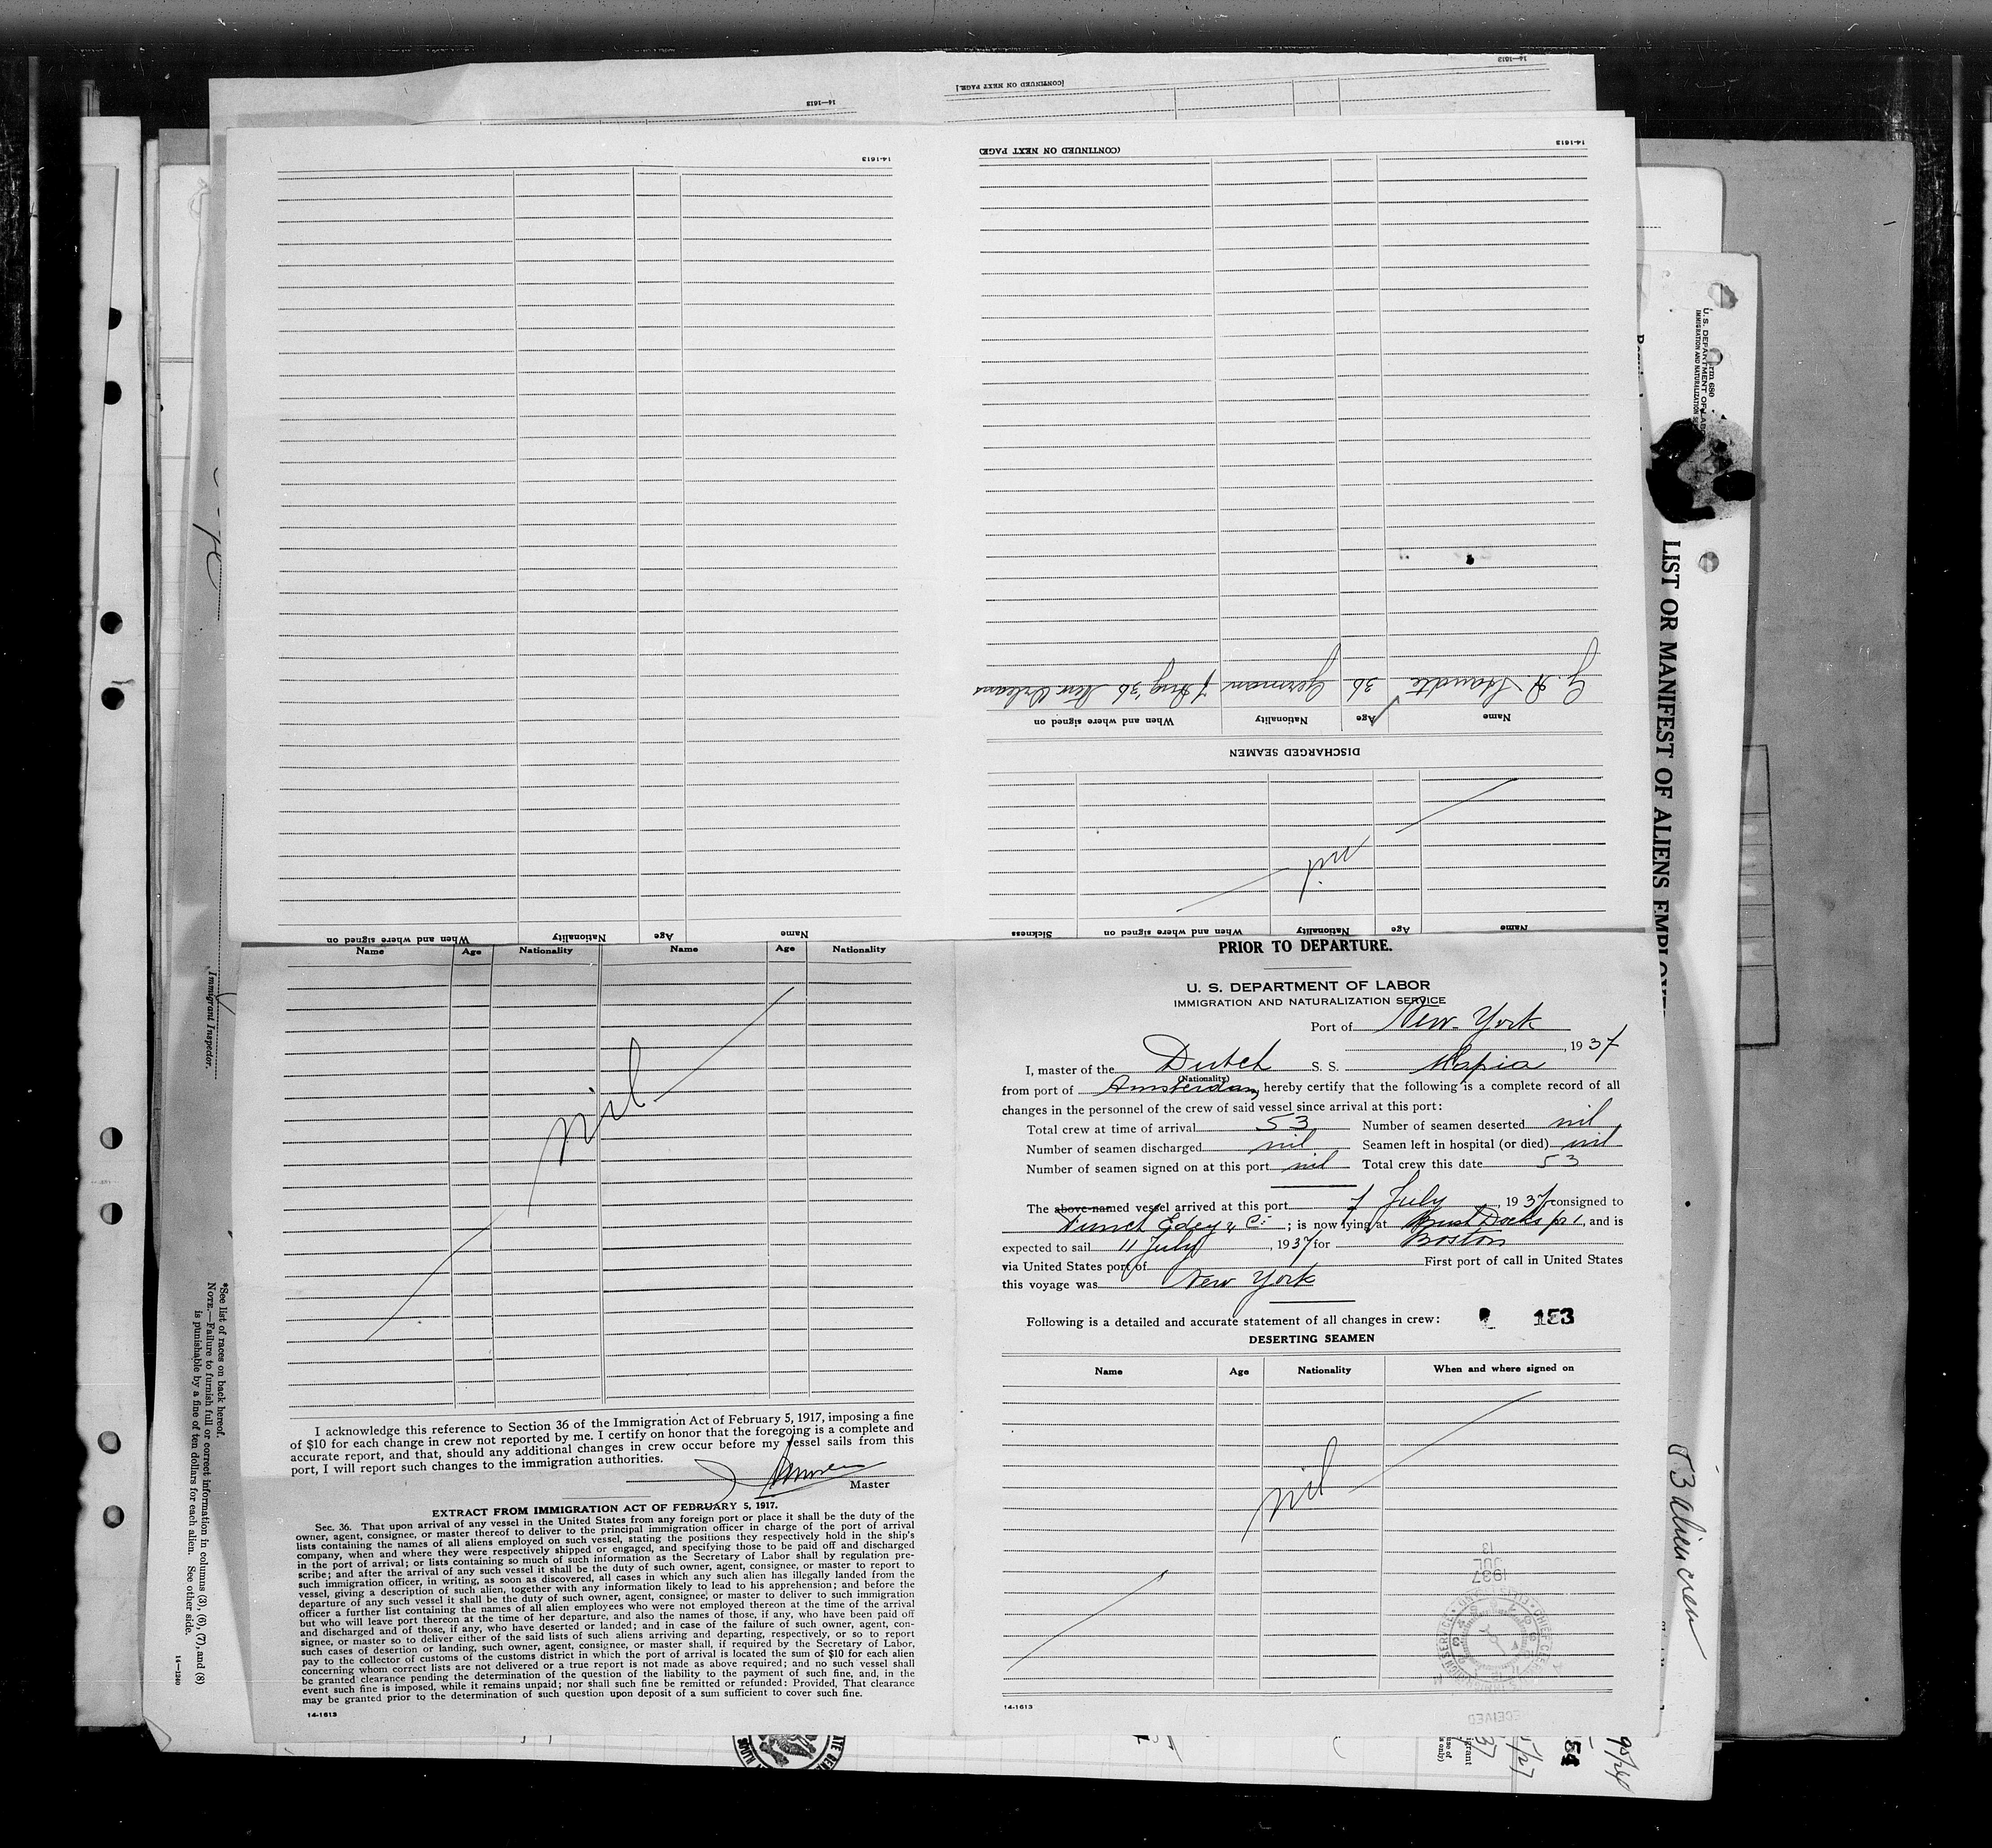 14—1613
(CONTINUED ON NEXT PAGE.)
14—1613
14-1613
(CONTINUED ON NEXT PAGE)
14-1613
G. A. 36 German 7 Aug '36 New Orleans
Name Age Nationality When and where signed on
DISCHARGED SEAMEN
nil
Name Age Nationality When and where signed on Sickness
Name Age Nationality When and where signed on
Name Age Nationality Name Age Nationality
nil
I acknowledge this reference to Section 36 of the Immigration Act of February 5, 1917, imposing a fine
of $10 for each change in crew not reported by me. I certify on honor that the foregoing is a complete and
accurate report, and that, should any additional changes in crew occur before my vessel sails from this
port, I will report such changes to the immigration authorities.
Master
EXTRACT FROM IMMIGRATION ACT OF FEBRUARY 5, 1917.
Sec. 36. That upon arrival of any vessel in the United States from any foreign port or place it shall be the duty of the
owner, agent, consignee, or master thereof to deliver to the principal immigration officer in charge of the port of arrival
lists containing the names of all aliens employed on such vessel, stating the positions they respectively hold in the ship's
company, when and where they were respectively shipped or engaged, and specifying those to be paid off and discharged
in the port of arrival; or lists containing so much of such information as the Secretary of Labor shall by regulation pre-
scribe; and after the arrival of any such vessel it shall be the duty of such owner, agent, consignee, or master to report to
such immigration officer, in writing, as soon as discovered, all cases in which any such alien has illegally landed from the
vessel, giving a description of such alien, together with any information likely to lead to his apprehension; and before the
departure of any such vessel it shall be the duty of such owner, agent, consignee, or master to deliver to such immigration
officer a further list containing the names of all alien employees who were not employed thereon at the time of the arrival
but who will leave port thereon at the time of her departure, and also the names of those, if any, who have been paid off
and discharged and of those, if any, who have deserted or landed; and in case of the failure of such owner, agent, con-
signee, or master so to deliver either of the said lists of such aliens arriving and departing, respectively, or so to report
such cases of desertion or landing, such owner, agent, consignee, or master shall, if required by the Secretary of Labor,
pay to the collector of customs of the customs district in which the port of arrival is located the sum of $10 for each alien
concerning whom correct lists are not delivered or a true report is not made as above required; and no such vessel shall
be granted clearance pending the determination of the question of the liability to the payment of such fine, and, in the
event such fine is imposed, while it remains unpaid; nor shall such fine be remitted or refunded: Provided, That clearance
may be granted prior to the determination of such question upon deposit of a sum sufficient to cover such fine.
14-1613
PRIOR TO DEPARTURE.
U. S. DEPARTMENT OF LABOR
IMMIGRATION AND NATURALIZATION SERVICE
Port of New York
, 1937
I, master of the Dutch S. S. Mapia
(Nationality)
from port of Amsterdam, hereby certify that the following is a complete record of all
changes in the personnel of the crew of said vessel since arrival at this port:
Total crew at time of arrival 53 Number of seamen deserted nil
Number of seamen discharged nil Seamen left in hospital (or died) nil
Number of seamen signed on at this port nil Total crew this date 53
The above-named vessel arrived at this port 7 July, 1937 consigned to
Funch Edey & Co; is now lying at Bush Docks pr 1, and is
expected to sail 11 July, 1937 for Boston
via United States port of First port of call in United States
this voyage was New York
Following is a detailed and accurate statement of all changes in crew: 153
DESERTING SEAMEN
Name Age Nationality When and where signed on
nil
13
JUL
1937
RECEIVED
14-1613
Immigrant Inspector.
*See list of races on back hereof.
NOTE.—Failure to furnish full or correct information in columns (3), (6), (7), and (8)
is punishable by a fine of ten dollars for each alien. See other side.
14—1240
Form 680
U. S. DEPARTMENT OF LABOR
IMMIGRATION AND NATURALIZATION
LIST OR MANIFEST OF ALIENS EMPLOYED
53 alien crew
54